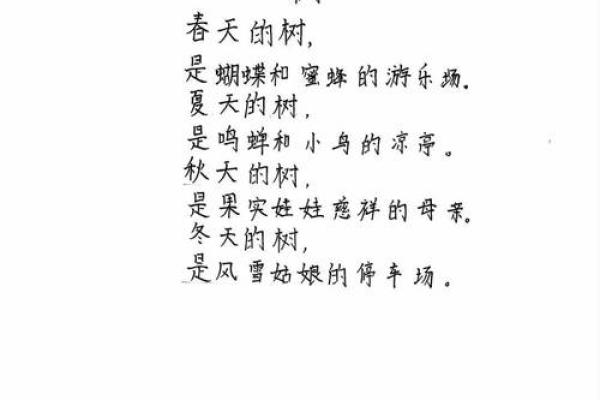 春天的树,
是蝴蝶和蜜蜂的游乐场。
夏天的树,
是鸣蝉和小鸟的凉亭。
秋天的树,
是果实娃娃慈祥的母亲。
冬天的树,
是风雪姑娘的停车场。